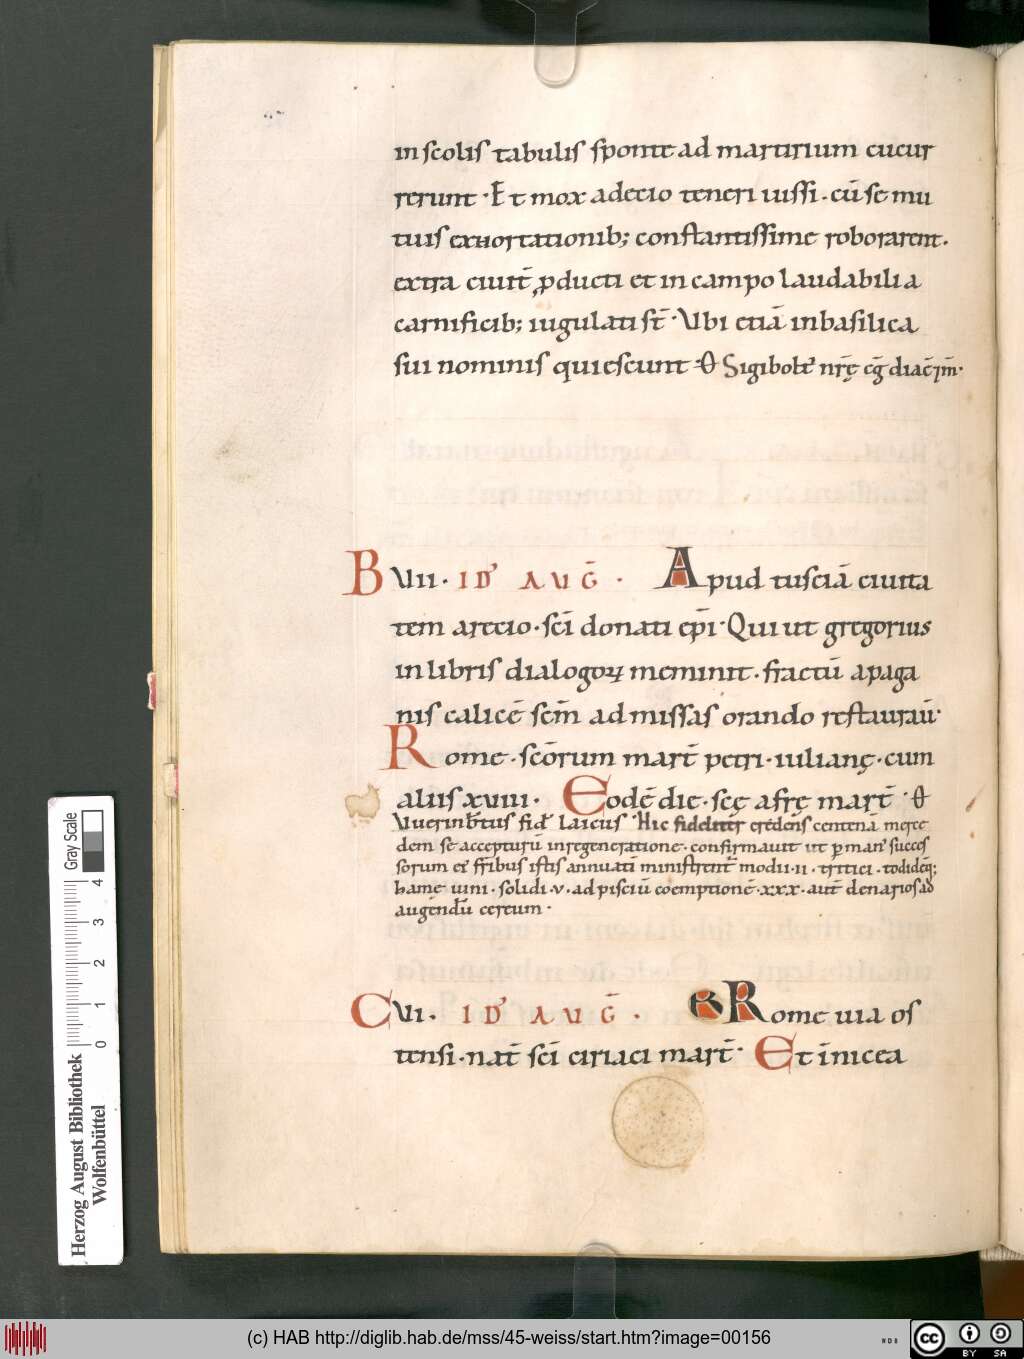 in scolis tabulis sponte ad martirium cucur
rerunt · Et mox a decio teneri iussi · cū se mu
tuis exhortationib; constantissime roborarent ·
extra ciuit̄ ꝓducti et in campo laudabili a
carnificib; iugulati st̄ · Vbi etiā in basilica
sui nominis quiescunt · Sigibote nr̄ę cḡ diac̄
B VII · ID' AUḠ · Apud tusciā ciuita
tem arecio · sc̄i donati ep̄i · Qui ut gregorius
in libris dialogoꝝ meminit · fractū a paga
nis calicē sc̄m ad missas orando restaurau̅ ·
Rome · sc̄orum mart̄ petri · iulianę · cum
aliis xviii · Eodē die · scę afrę mart̄ ·
laicus · Hic fideliter credens centenā merce
dem se accepturū in regeneratione · confirmauit ut ꝑ man' succes
sorum ei' fr̄ibus istis annuatī ministrent̄ modii · ii · tritici · todidēq;
hame uini · solidi · v · ad pisciū coemptionē · xxx · aut̄ denarios ad
augendū cereum ·
C VI · ID' AUḠ · Rome uia os
tensi · nat̄ sc̄i ciriaci mart̄ · Et in nicea
Gray Scale
0 1 2 3 4
Herzog August Bibliothek
Wolfenbüttel
(c) HAB http://diglib.hab.de/mss/45-weiss/start.htm?image=00156
WDB
cc
BY SA